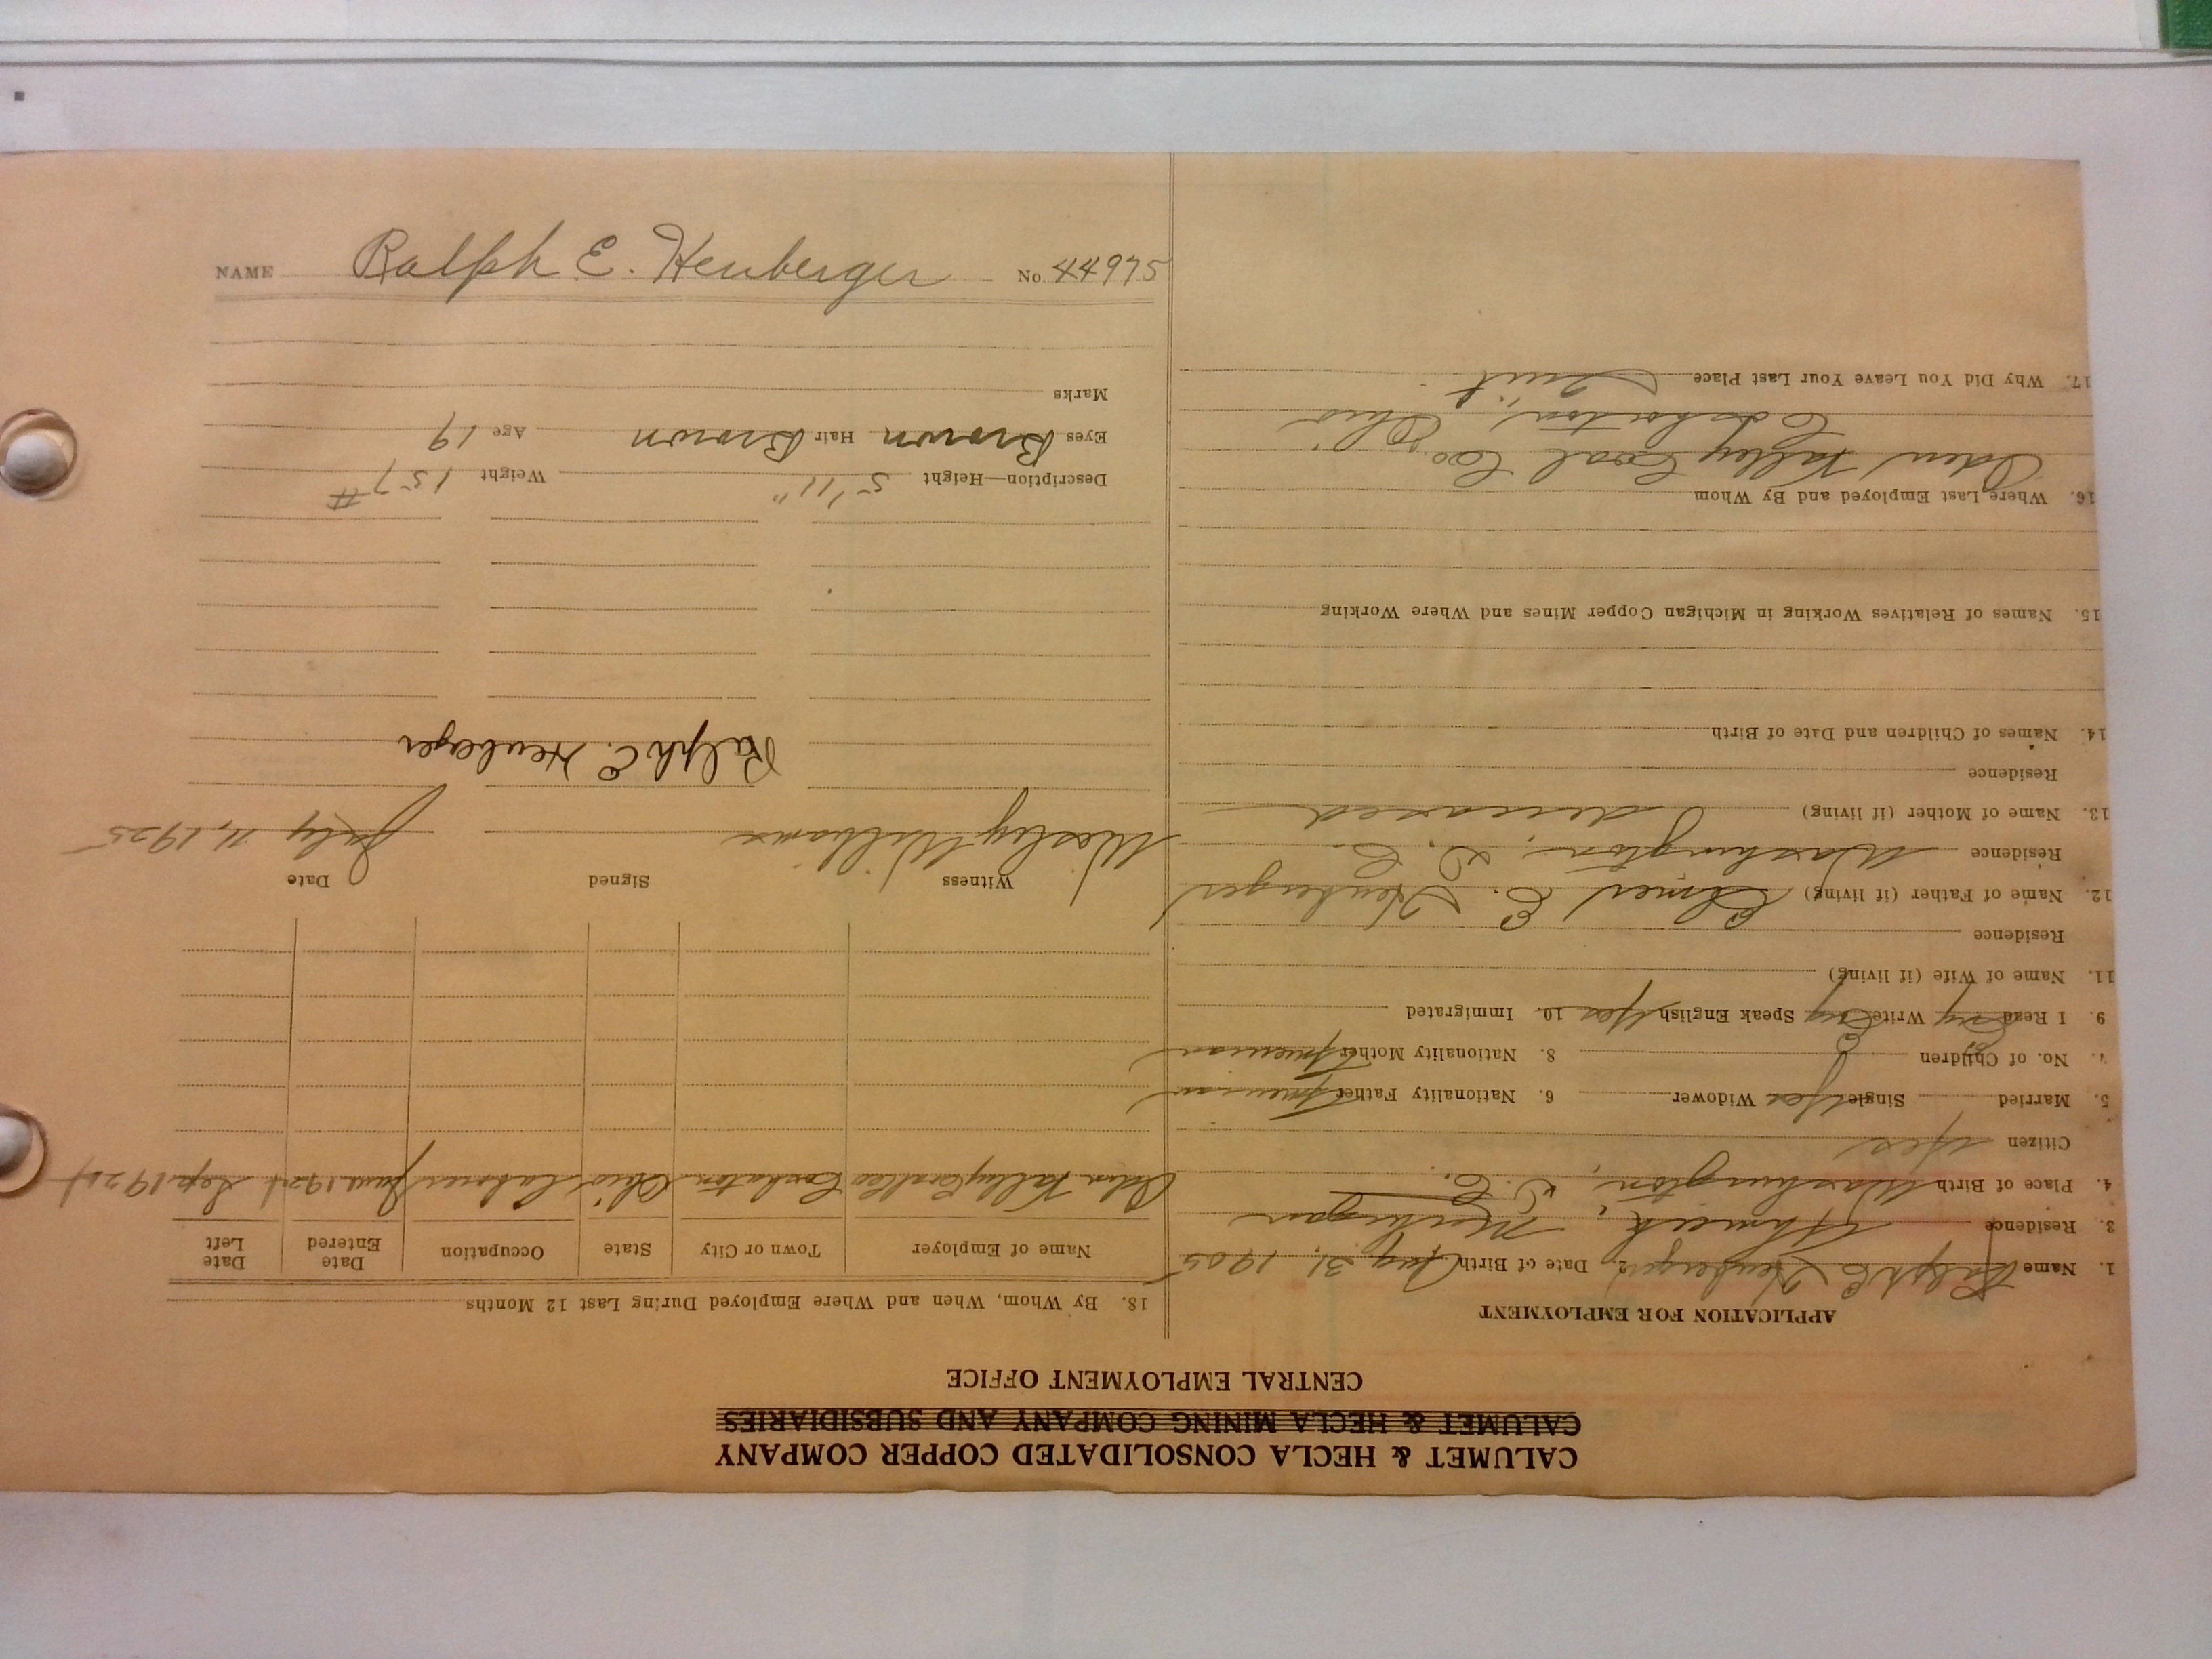 CALUMET & HECLA CONSOLIDATED COPPER COMPANY
CALUMET & HECLA MINING COMPANY AND SUBSIDIARIES
CENTRAL EMPLOYMENT OFFICE
APPLICATION FOR EMPLOYMENT
1. Name Ralph E Heuberger 2. Date of Birth Aug. 31, 1905
3. Residence Michigan
4. Place of Birth Washington, D. C.
Citizen Yes
5. Married Single Yes Widower 6. Nationality Father American
7. No. of Children 8. Nationality Mother American
9. I Read Eng Write Eng Speak English Yes 10. Immigrated
11. Name of Wife (if living)
Residence
12. Name of Father (if living) Elmer E. Heuberger
Residence Washington, D. C.
13. Name of Mother (if living) deceased
Residence
14. Names of Children and Date of Birth
15. Names of Relatives Working in Michigan Copper Mines and Where Working
16. Where Last Employed and By Whom
Valley Coal Co.
Ohio
17. Why Did You Leave Your Last Place Quit
18. By Whom, When and Where Employed During Last 12 Months
Name of Employer Town or City State Occupation Date Entered Date Left
Valley Coal Co Ohio Laborer June 1924 Sep. 1924
Witness Signed Date
Wesley Williams July 11, 1925
Ralph E. Heuberger
Description—Height 5'11" Weight 157 #
Eyes Brown Hair Brown Age 19
Marks
NAME Ralph E. Heuberger No. 44975